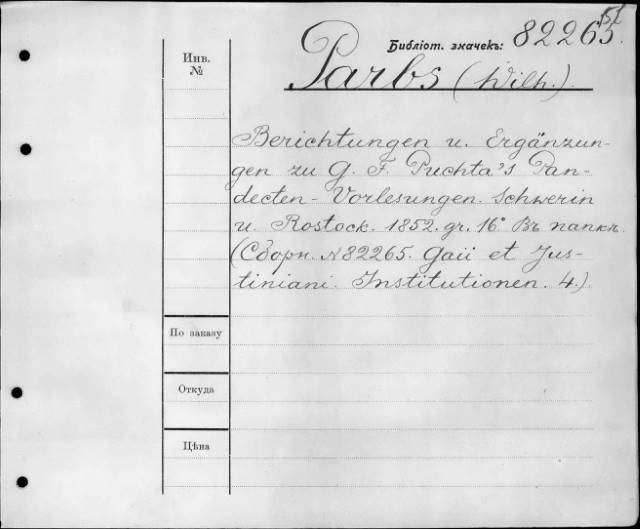 Инв.
№
Библіот. значекъ: 82265
Parbs (Wilh.)
Berichtungen u. Ergänzun-
gen zu G. F. Puchta's Pan-
decten-Vorlesungen. Schwerin
u. Rostock. 1852. gr. 16°. Въ папкѣ.
(Сборн. №82265. Gaii et Jus-
tiniani. Institutionen. 4.)
По заказу
Откуда
Цѣна